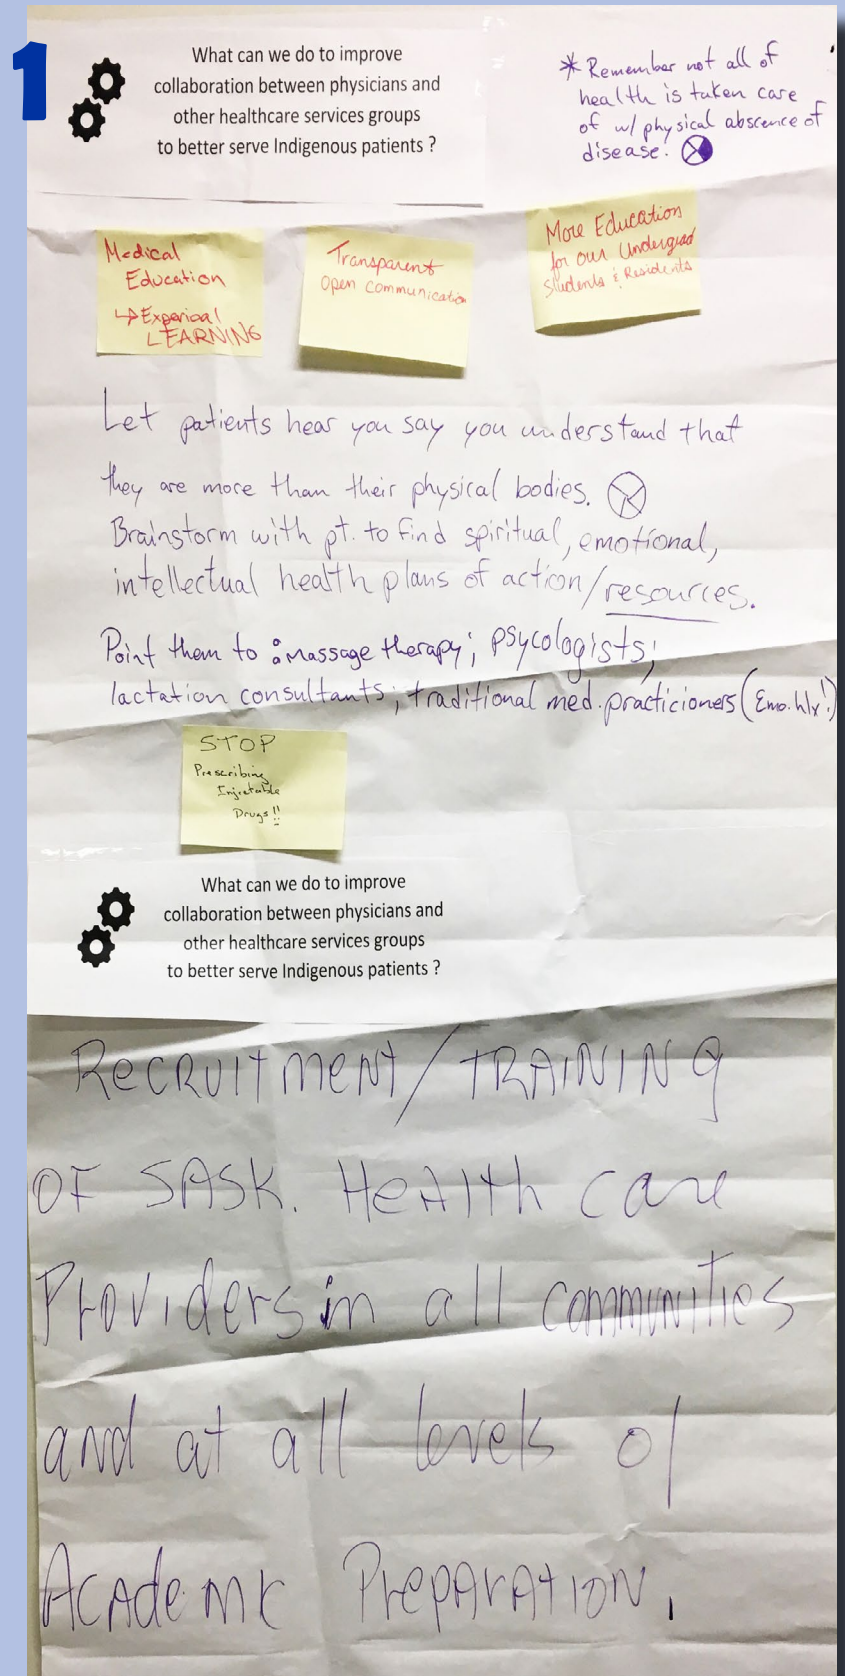 1
What can we do to improve
collaboration between physicians and
other healthcare services groups
to better serve Indigenous patients ?
* Remember not all of
health is taken care
of w/ physical abscence of
disease.
Medical
Education
↳ Experical
LEARNING
Transparent
Open Communication
More Education
for our Undergrad
Students & Residents
Let patients hear you say you understand that
they are more than their physical bodies.
Brainstorm with pt. to find spiritual, emotional,
intellectual health plans of action/resources.
Point them to : massage therapy; psycologists;
lactation consultants; traditional med. practicioners (Emo. hlx!)
STOP
Prescribing
Injectable
Drugs!!
What can we do to improve
collaboration between physicians and
other healthcare services groups
to better serve Indigenous patients ?
RECRUITMENT/TRAINING
OF SASK. HEALTH CARE
Providers in all communities
and at all levels of
Academic Preparation.